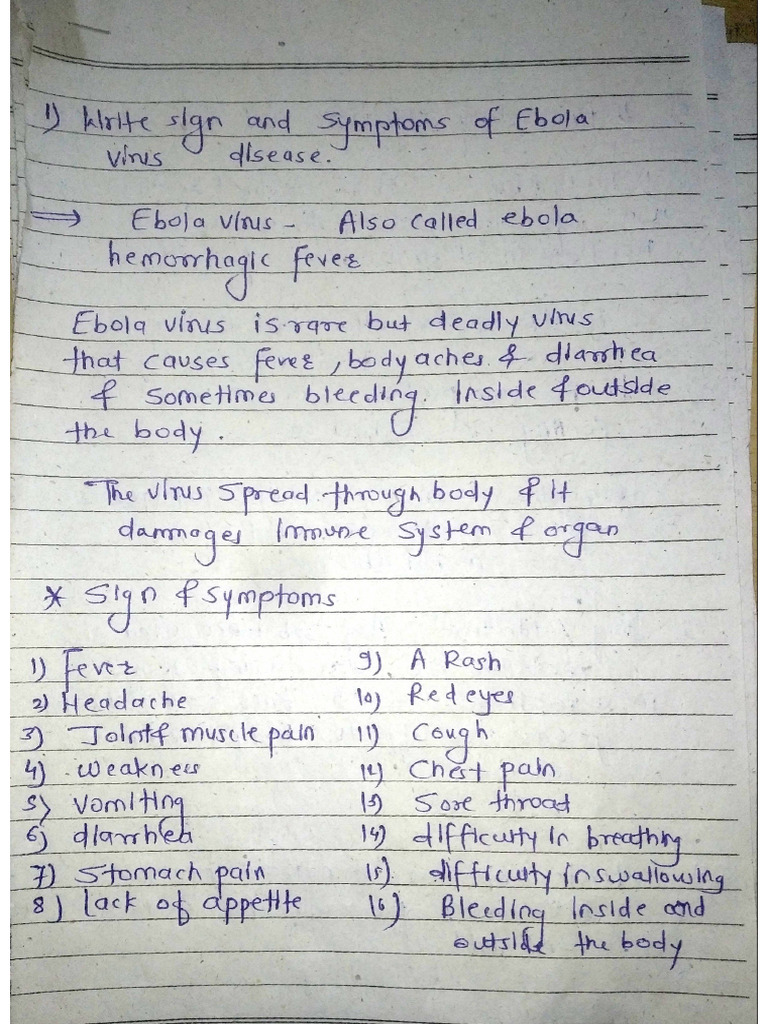 1) Write sign and symptoms of Ebola
virus disease.
⇒ Ebola virus - Also called ebola
hemorrhagic fever
Ebola virus is rare but deadly virus
that causes fever, body aches & diarrhea
& sometimes bleeding. Inside & outside
the body.
The virus spread through body & it
dammages Immune system & organ
* Sign & symptoms
1) Fever
2) Headache
3) Joint & muscle pain
4) weakness
5) vomiting
6) diarrhea
7) Stomach pain
8) lack of appetite
9) A Rash
10) Red eyes
11) Cough
12) Chest pain
13) Sore throat
14) difficulty in breathing
15) difficulty in swallowing
16) Bleeding Inside and
outside the body